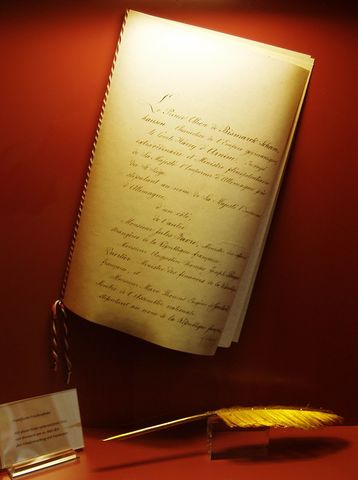 Le Prince Othon de Bismarck-Schön-
hausen, Chancelier de l'Empire germanique,
le Comte Harry d'Arnim, Envoyé
extraordinaire et Ministre plénipotentiaire
de Sa Majesté l'Empereur d'Allemagne près
du St. Siège
stipulant au nom de Sa Majesté l'Empereur
d'Allemagne,
d'un côté,
de l'autre
Monsieur Jules Favre, Ministre des affaires
étrangères de la République française,
Monsieur Augustin Thomas Joseph Pouyer-
Quertier, Ministre des finances de la République
française, et
Monsieur Marc Thomas Eugène de Goulard,
Membre de l'Assemblée nationale
stipulant au nom de la République française